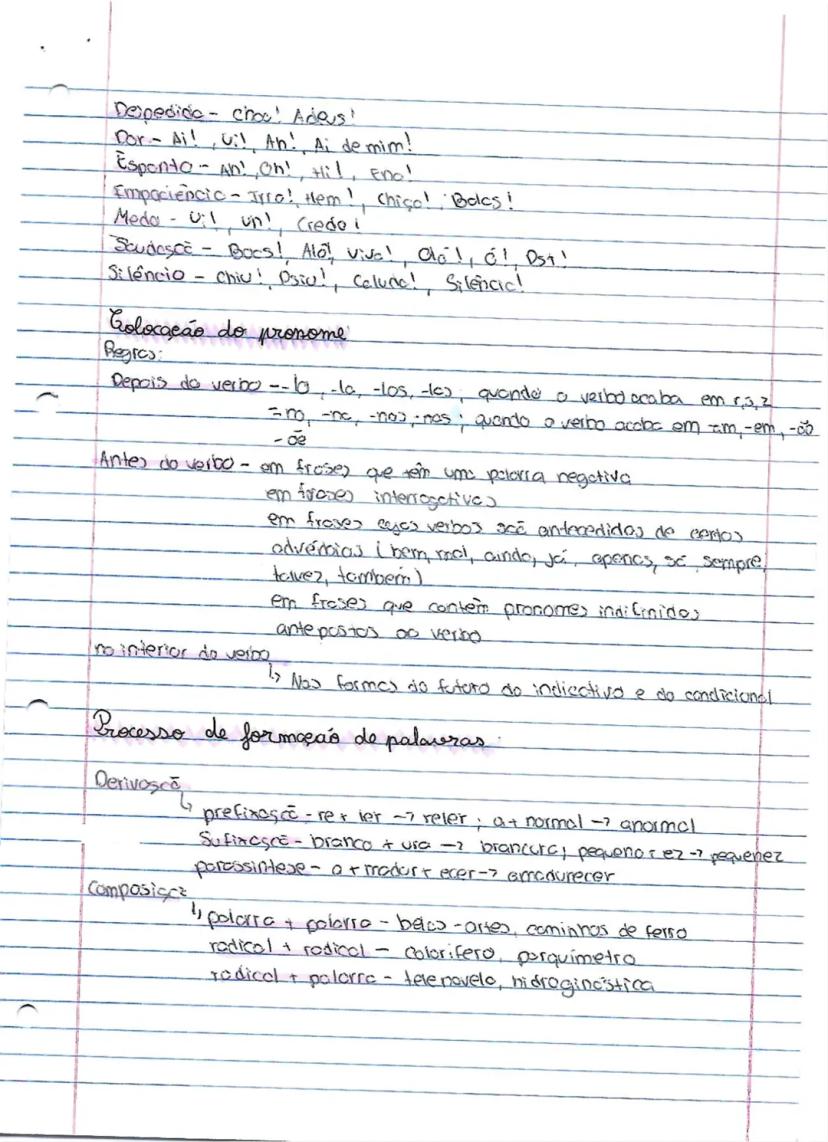 Despedida - Chao! Adeus!
Dor - Ai!, Ui!, Ah!, Ai de mim!
Espanto - Ah!, Oh!, Hi!, Ena!
Empaciência - Irra!, Hem!, Chiça!, Bolas!
Medo - Ui!, uh!, Credo!
Saudação - Boas!, Alô!, Viva!, Olá!, ó!, Pst!
Silêncio - Chiu!, Psiu!, Caluda!, Silêncio!
Colocação do pronome
Regras:
Depois do verbo - -lo, -la, -los, -las; quando o verbo acaba em r, s, z
-no, -na, -nos, -nas; quando o verbo acaba em -am, -em, -ão
-õe
Antes do verbo - em frases que têm uma palavra negativa
em frases interrogativas
em frases cujos verbos são antecedidos de certos
advérbios (bem, mal, ainda, já, apenas, só, sempre,
talvez, também)
em frases que contêm pronomes indifinidos
antepostos ao verbo
no interior do verbo
↳ Nas formas do futuro do indicativo e do condicional
Processo de formação de palavras
Derivação
↳ prefixação - re + ler → reler; a + normal → anormal
Sufixação - branco + ura → brancura; pequeno + ez → pequenez
parassíntese - a + madur + ecer → amadurecer
Composição
↳ palavra + palavra - belas-artes, caminhos de ferro
radical + radical - calorífero, parquímetro
radical + palavra - telenovela, hidroginástica